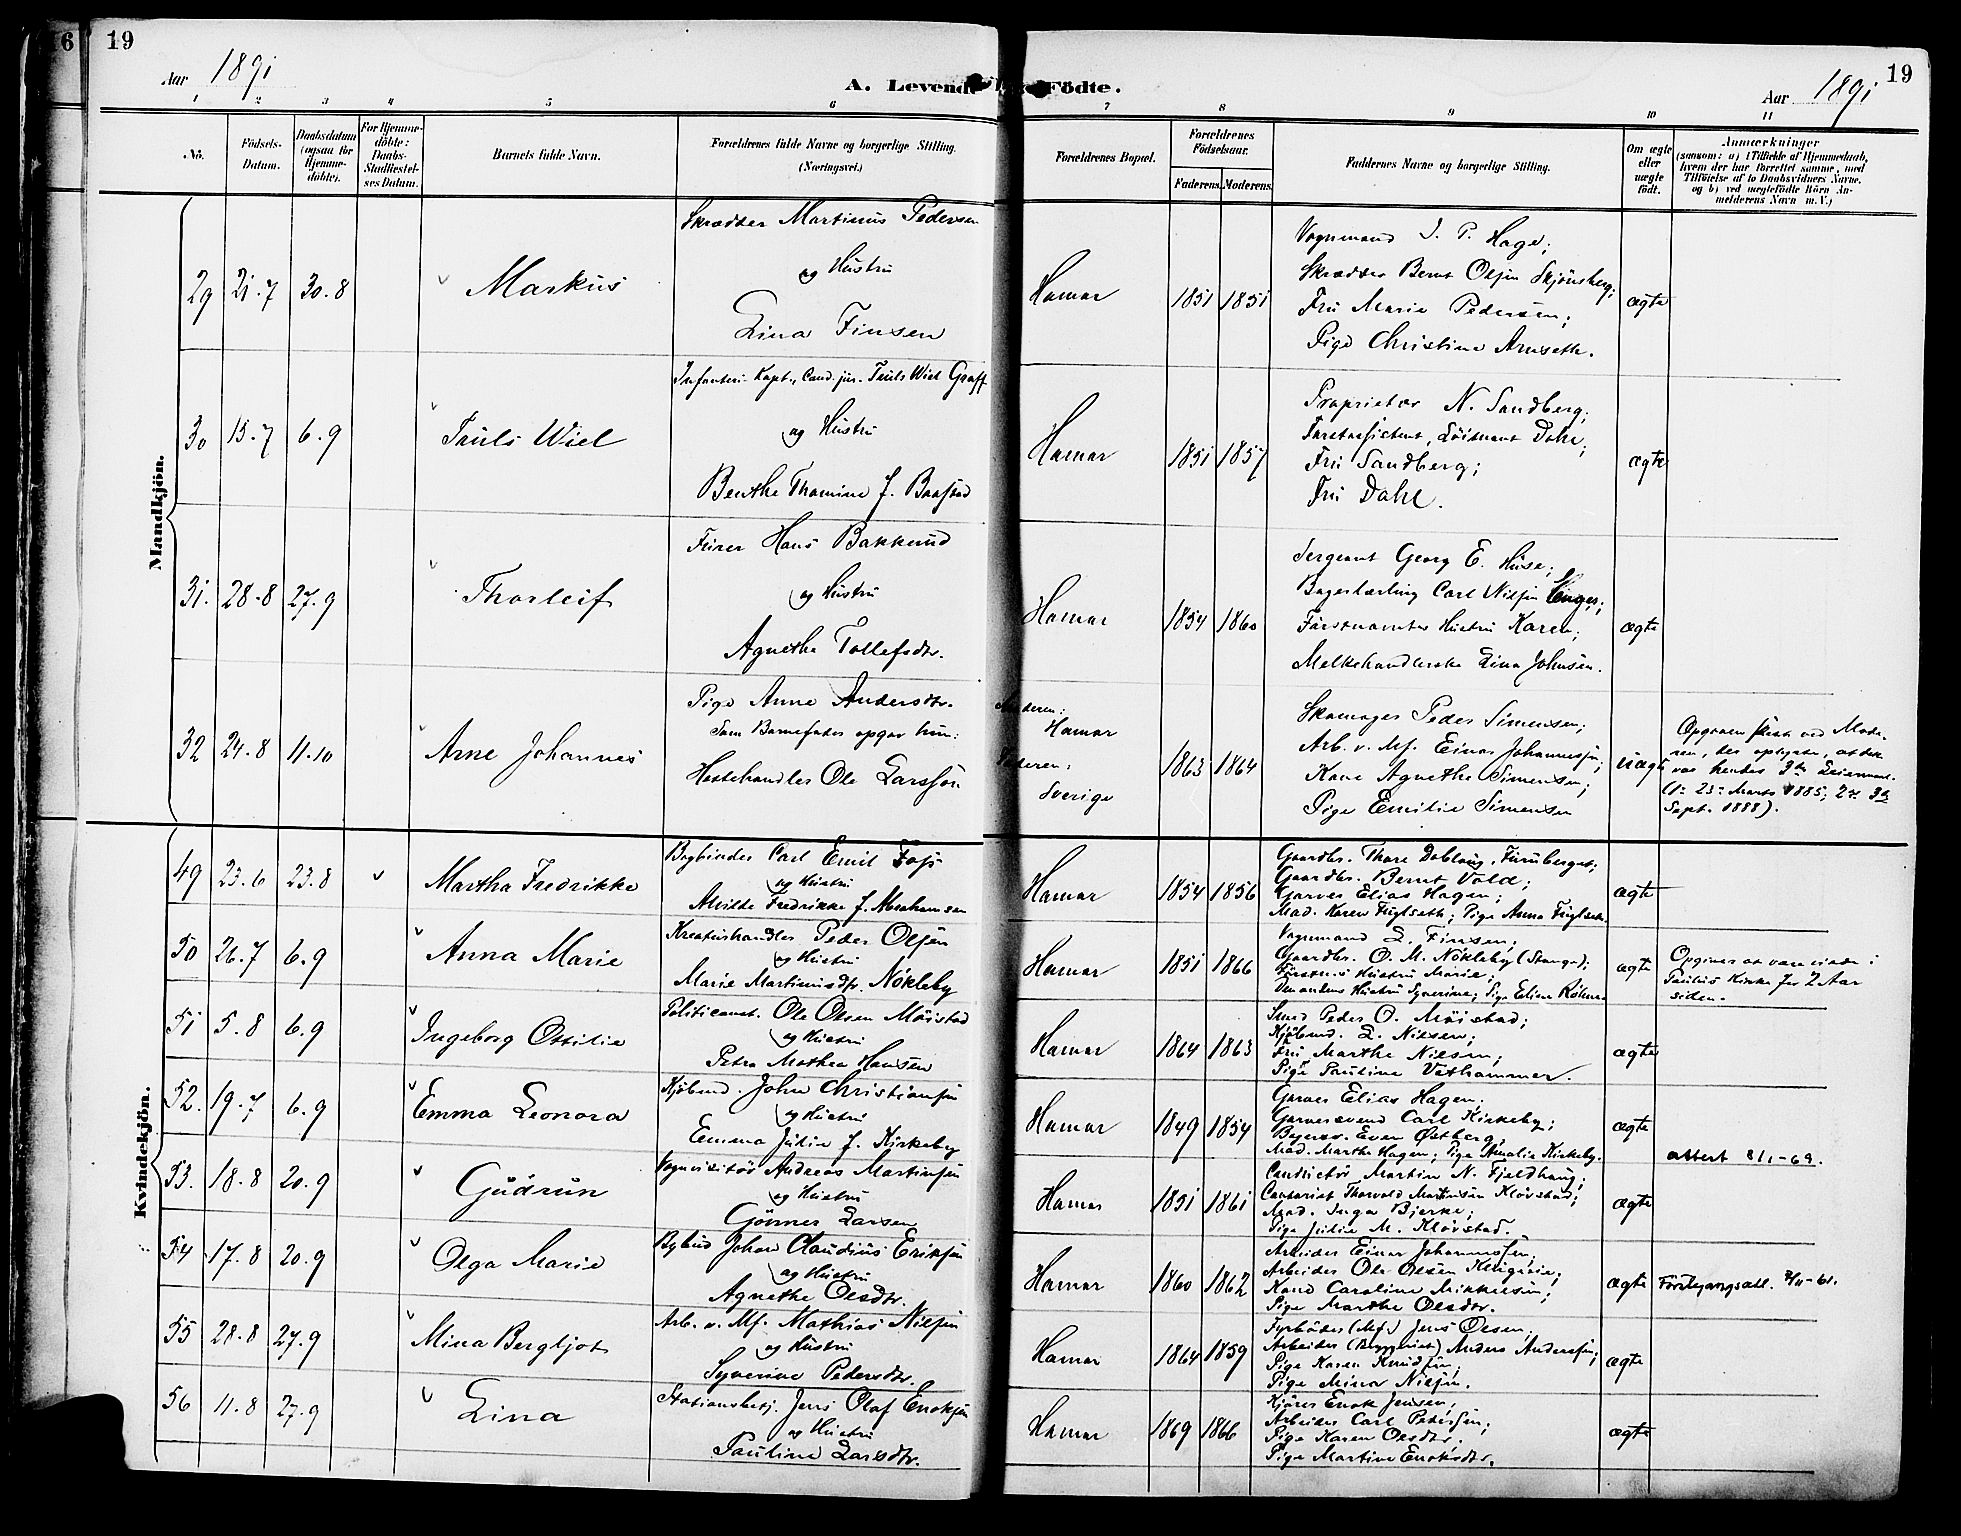 6
19
19
Aar 1891
Aar 1891
A. Levende Födte.
1 2 3 4 5 6 7 8 9 10 11
No.
Födsels-
Datum.
Daabsdatum
(ogsaa for
Hjemme-
döbte).
For Hjemme-
döbte:
Daabs-
Stadfæstel-
ses Datum.
Barnets fulde Navn.
Forældrenes fulde Navne og borgerlige Stilling.
(Næringsvei.)
Forældrenes Bopæl.
Forældrenes
Födselsaar.
Faderens.
Moderens.
Faddernes Navne og borgerlige Stilling.
Om ægte
eller
uægte
födt.
Anmærkninger
(saasom: a) i Tilfælde af Hjemmedaab,
hvem der har forrettet samme, med
Tilföielse af to Daabsvidners Navne.
og b) ved uægtefödte Börn An-
melderens Navn m. V.)
Mandkjön.
29 21.7 30.8 Markus
Skrædder Martinus Pedersen
og Hustru
Lina Finsen
Hamar 1851 1851
Vognmand J. P. Hage;
Skrædder Bernt Olsen Skjönsberg;
Fru Marie Pedersen;
Pige Christine Arneseth.
ægte
30 15.7 6.9 Truls Wiel
Infanteri-Kapt., Cand. jur. Truls Wiel Graff
og Hustru
Benthe Thomine f. Baastad
Hamar 1851 1857
Proprietær N. Sandberg;
Forstassistent, Löitnant Dahl;
Fru Sandberg;
Fru Dahl.
ægte
31. 28.8 27.9 Thorleif
Furer Hans Bakkerud
og Hustru
Agnethe Tollefsdtr.
Hamar 1854 1860
Sergeant Georg E. Huse;
Bagerlærling Carl Nilsen Enger;
Förstnævntes Hustru Karen;
Melkehandlerske Lina Johnsen.
ægte
32 24.8 11.10 Arne Johannes
Pige Anne Andersdtr.
Som Barnefader opgav hun:
Hestehandler Ole Larssön
Moderen:
Hamar
Faderen:
Sverige
1863 1864
Skomager Peder Simensen;
Arb. v. Mf. Einar Johannessen;
Kone Agnethe Simensen;
Pige Emilie Simensen
uægte
Opgaven skeet ved Mode-
ren, der oplyste, at det
var hendes 3die Leiermaal.
(1: 23: Marts 1885; 2: 3die
Sept. 1888).
Kvindekjön.
49 23.6 23.8 Martha Fredrikke
Bogbinder Carl Emil Foss
og Hustru
Alvilde Fredrikke f. Abrahamsen
Hamar 1854 1856
Gaardbr. Thore Dobloug, Furuberget;
Gaardbr. Bernt Vold;
Garver Elias Hagen;
Mad. Karen Fuglseth; Pige Anna Fuglseth.
ægte
50 26.7 6.9 Anna Marie
Kreaturhandler Peder Olsen
og Hustru
Marie Martinusdtr. Nökleby
Hamar 1851 1866
Vognmand L. Finsen;
Gaardbr. O. M. Nökleby (Stange);
Förstn's Hustru Marie;
Den andens Hustru Syverine;
ægte
Opgives at være viede i
Paulus Kirke for 2 Aar
siden.
51 5.8 6.9 Ingeborg Ottilie
Politiconst. Ole Olsen Möistad
og Hustru
Petra Mathea Hansen
Hamar 1864 1863
Smed Peder O. Möistad;
Kjöbmd. L. Nilsen;
Fru Marthe Nilsen;
Pige Pauline Vethammer.
ægte
52. 19.7 6.9 Emma Leonora
Kjöbmd. John Christiansen
og Hustru
Emma Julie f. Kirkeby
Hamar 1849 1854
Garver Elias Hagen;
Garversvend Carl Kirkeby;
Even Østberg;
Mad. Marthe Hagen; Pige Amalie Kirkeby.
ægte
attert
53. 18.8 20.9 Gudrun
Vognvisitör Andreas Martinsen
og Hustru
Larsen
Hamar 1851 1861
Conductör Martin N. Fjeldhaug;
Contorist Thorvald Martinsen Klövstad;
Mad. Inga Bjerke;
Pige Julie M. Klövstad.
ægte
54 17.8 20.9 Olga Marie
Bybud Johan Claudius Eriksen
og Hustru
Agnethe Olsdtr.
Hamar 1860 1862
Arbeider Einar Johannessen;
Arbeider Ole Olsen
Kone Caroline Mikkelsen;
Pige Marthe Olsdtr.
ægte
55 28.8 27.9 Mina Bergljot
Arb. v. Mf. Mathias Nilsen
og Hustru
Syverine Pedersdtr.
Hamar 1864 1859
Fyrböder (Mf.) Jens Olsen;
Arbeider (Bryggeriet) Anders Anderssen;
Pige Karen Knudsen;
Pige Mina Nilsen.
ægte
56 11.8 27.9 Lina
Stationsbetj. Jens Olaf Enoksen
og Hustru
Pauline Larsdtr.
Hamar 1869 1866
Kjörer Enok Jensen;
Arbeider Carl Petersen;
Pige Karen Olsdtr.
Pige Martine Enoksdtr.
ægte